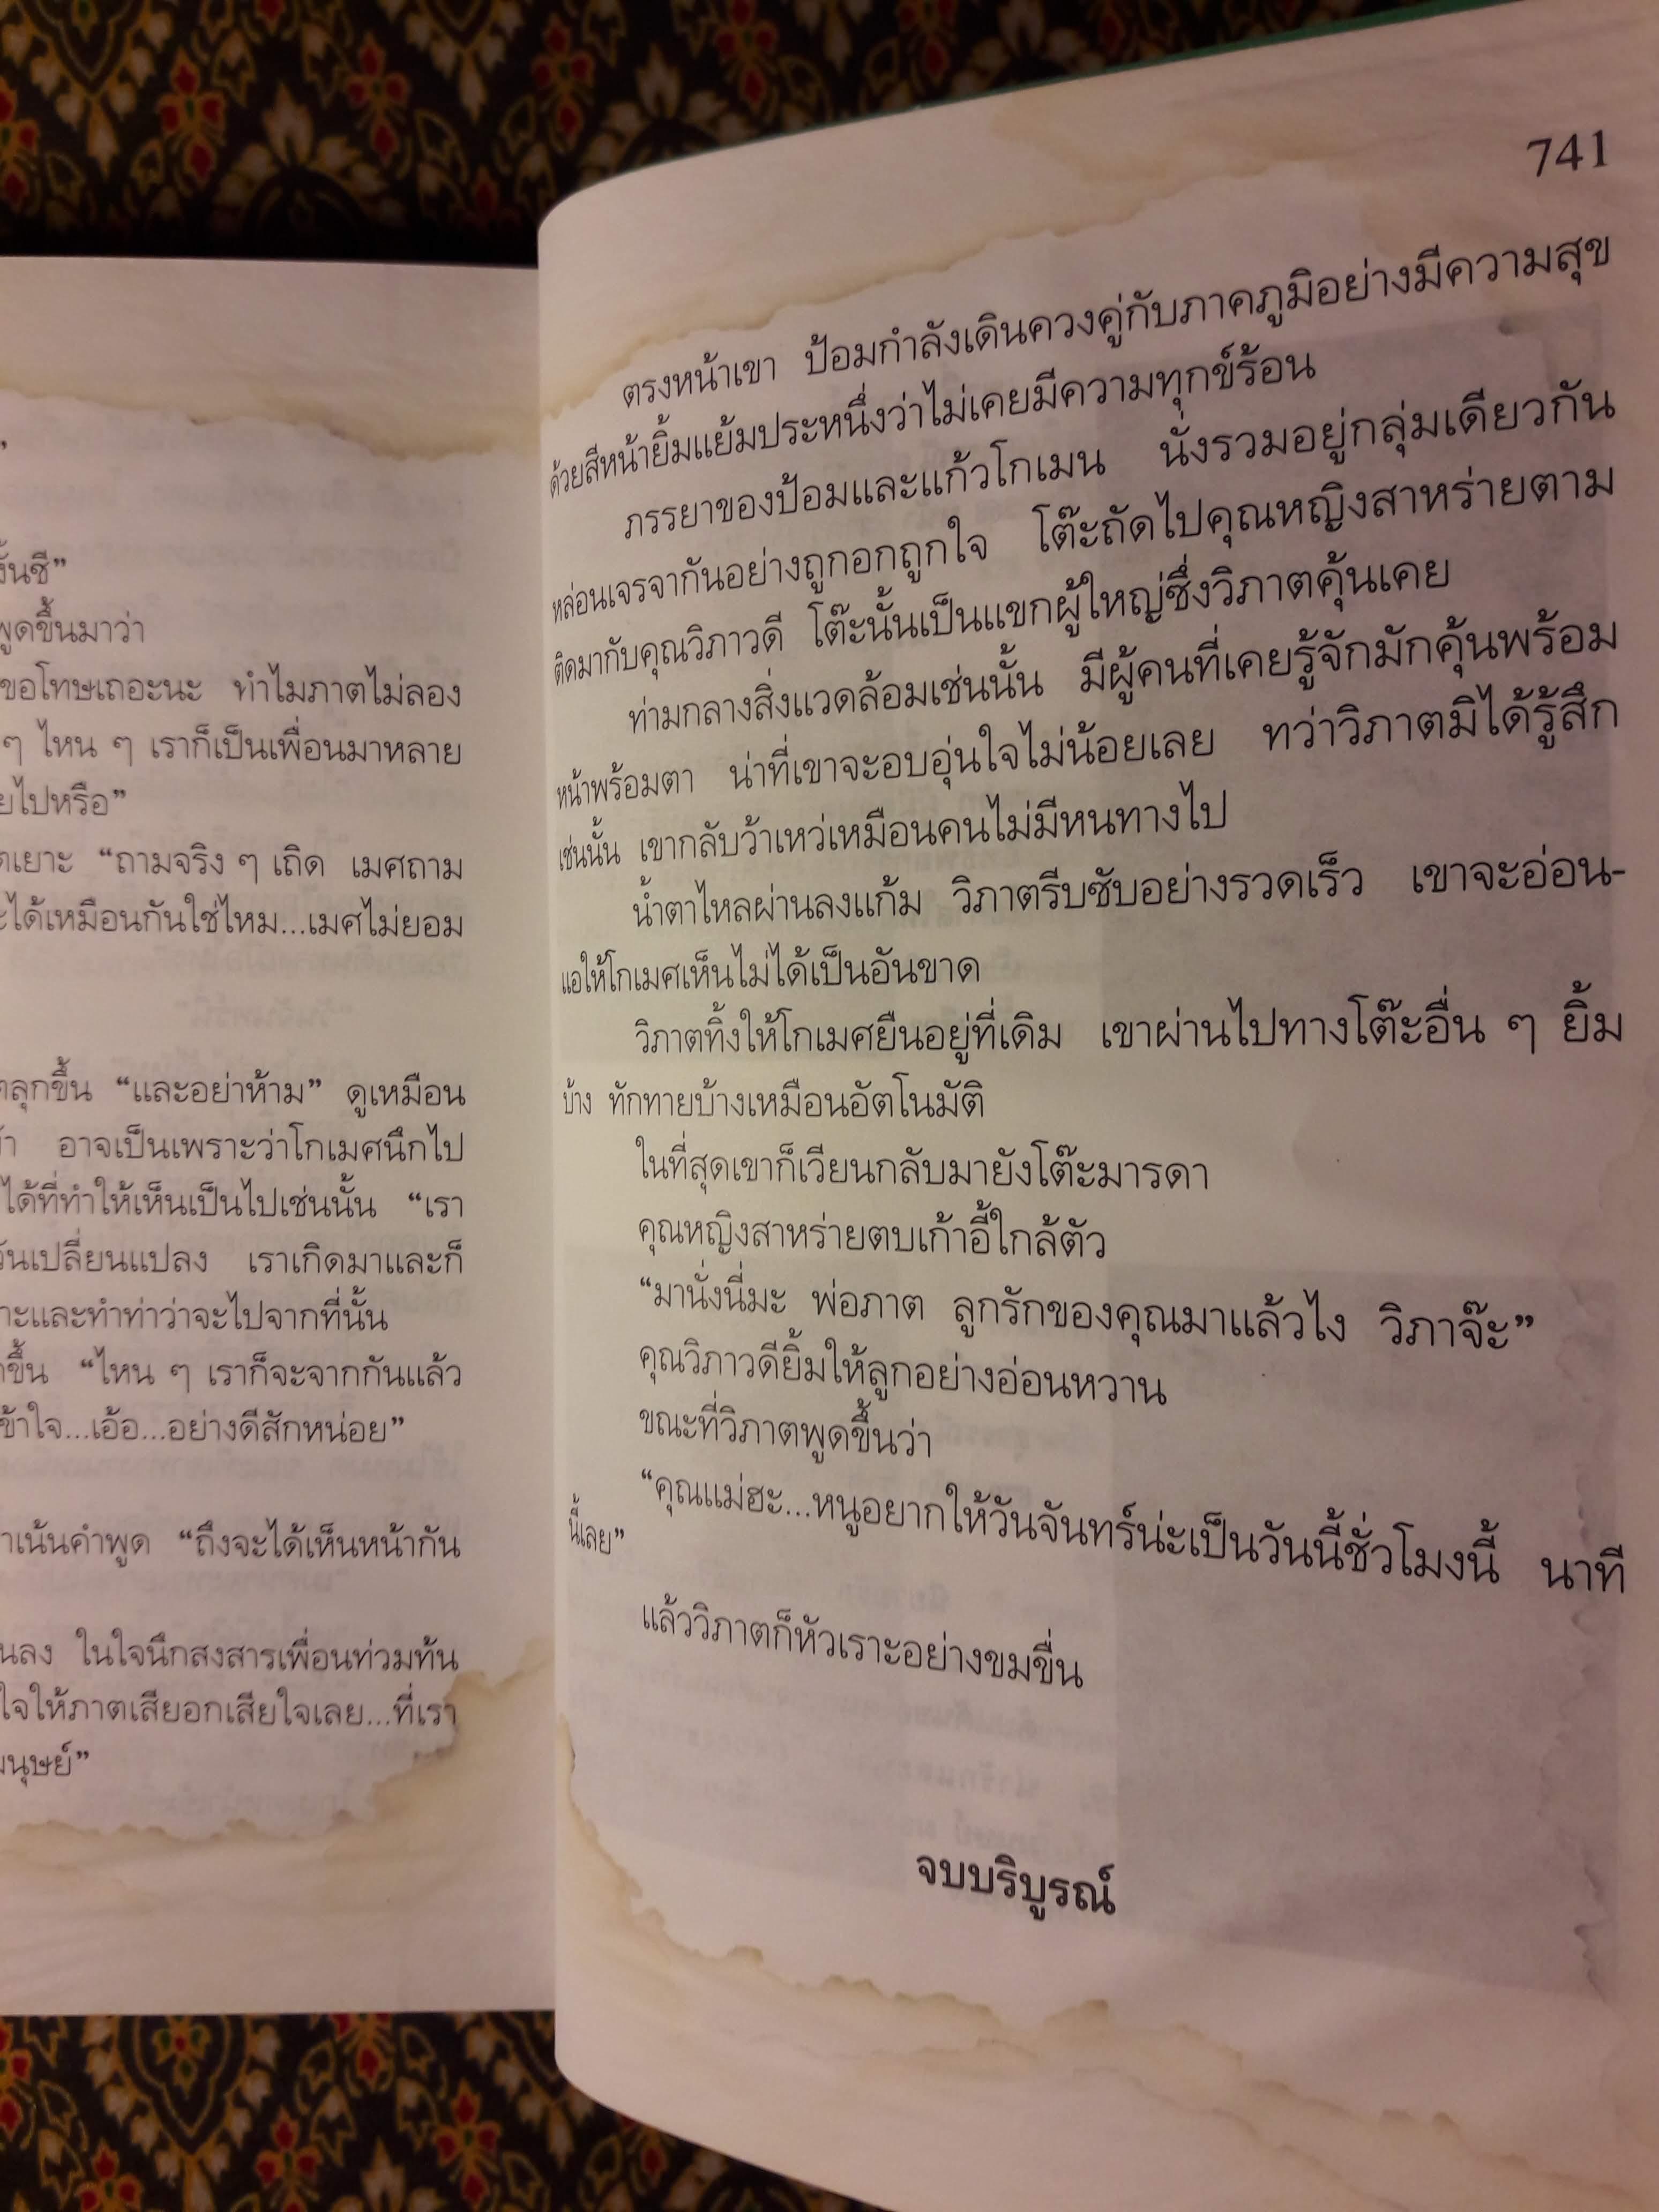 งั้นซี”
พูดขึ้นมาว่า
ขอโทษเถอะนะ ทำไมภาตไม่ลอง
ๆ ไหน ๆ เราก็เป็นเพื่อนมาหลาย
ยไปหรือ”
ดเยาะ “ถามจริง ๆ เถิด เมศถาม
ะได้เหมือนกันใช่ไหม...เมศไม่ยอม
ลุกขึ้น “และอย่าห้าม” ดูเหมือน
อาจเป็นเพราะว่าโกเมศนึกไป
ได้ที่ทำให้เห็นเป็นไปเช่นนั้น “เรา
วันเปลี่ยนแปลง เราเกิดมาและก็
าะและทำท่าว่าจะไปจากที่นั้น
ขึ้น “ไหน ๆ เราก็จะจากกันแล้ว
ข้าใจ...เอ้อ...อย่างดีสักหน่อย”
เน้นคำพูด “ถึงจะได้เห็นหน้ากัน
นลง ในใจนึกสงสารเพื่อนท่วมท้น
ใจให้ภาตเสียอกเสียใจเลย...ที่เรา
มนุษย์”
741
ตรงหน้าเขา ป้อมกำลังเดินควงคู่กับภาคภูมิอย่างมีความสุข
ด้วยสีหน้ายิ้มแย้มประหนึ่งว่าไม่เคยมีความทุกข์ร้อน
ภรรยาของป้อมและแก้วโกเมน นั่งรวมอยู่กลุ่มเดียวกัน
หล่อนเจรจากันอย่างถูกอกถูกใจ โต๊ะถัดไปคุณหญิงสาหร่ายตาม
ติดมากับคุณวิภาวดี โต๊ะนั้นเป็นแขกผู้ใหญ่ซึ่งวิภาตคุ้นเคย
ท่ามกลางสิ่งแวดล้อมเช่นนั้น มีผู้คนที่เคยรู้จักมักคุ้นพร้อม
หน้าพร้อมตา น่าที่เขาจะอบอุ่นใจไม่น้อยเลย ทว่าวิภาตมิได้รู้สึก
เช่นนั้น เขากลับว้าเหว่เหมือนคนไม่มีหนทางไป
น้ำตาไหลผ่านลงแก้ม วิภาตรีบซับอย่างรวดเร็ว เขาจะอ่อน-
แอให้โกเมศเห็นไม่ได้เป็นอันขาด
วิภาตทิ้งให้โกเมศยืนอยู่ที่เดิม เขาผ่านไปทางโต๊ะอื่น ๆ ยิ้ม
บ้าง ทักทายบ้างเหมือนอัตโนมัติ
ในที่สุดเขาก็เวียนกลับมายังโต๊ะมารดา
คุณหญิงสาหร่ายตบเก้าอี้ใกล้ตัว
“มานั่งนี่มะ พ่อภาต ลูกรักของคุณมาแล้วไง วิภาจ๊ะ”
คุณวิภาวดียิ้มให้ลูกอย่างอ่อนหวาน
ขณะที่วิภาตพูดขึ้นว่า
“คุณแม่ฮะ...หนูอยากให้วันจันทร์น่ะเป็นวันนี้ชั่วโมงนี้ นาที
นี้เลย”
แล้ววิภาตก็หัวเราะอย่างขมขื่น
จบบริบูรณ์